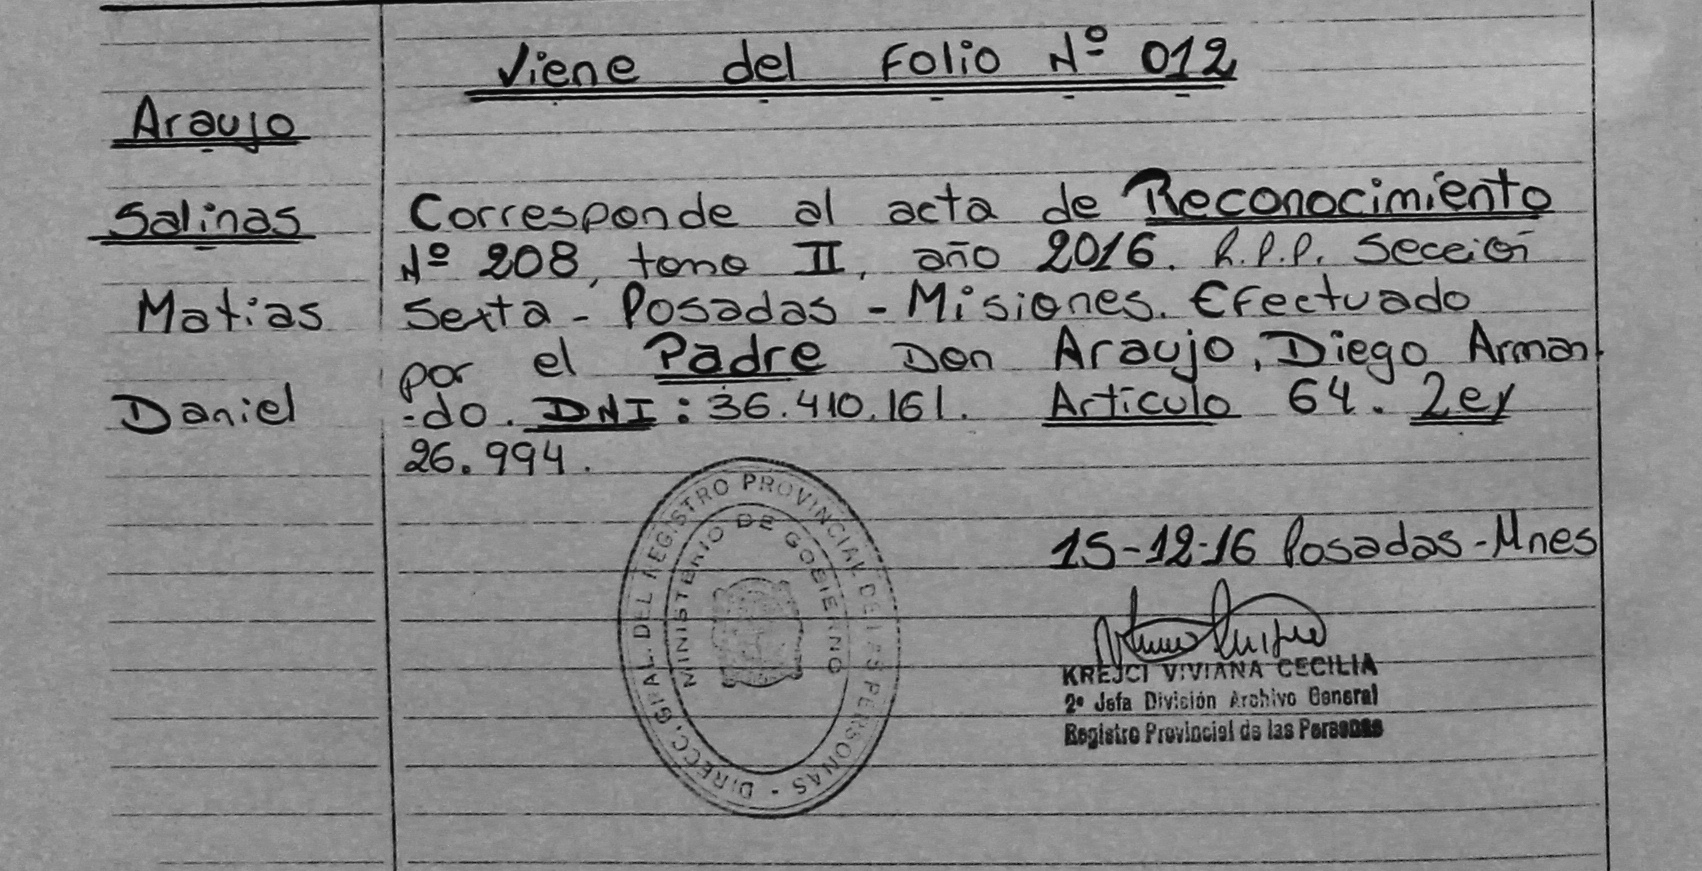 Viene del Folio Nº 012
Araujo
Salinas
Matias
Daniel
Corresponde al acta de Reconocimiento
Nº 208, tomo II, año 2016. R.P.P. Sección
Sexta - Posadas - Misiones. Efectuado
por el Padre Don Araujo, Diego Arman
-do. DNI: 36.410.161. Articulo 64. Ley
26.994.
DIRECC. GRAL. DEL REGISTRO PROVINCIAL DE LAS PERSONAS -
MINISTERIO DE GOBIERNO
15-12-16 Posadas-Mnes
KREJCI VIVIANA CECILIA
2º Jefa División Archivo General
Registro Provincial de las Personas